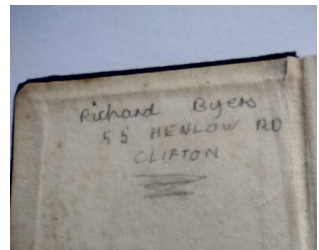 Richard Byers
55 HENLOW RD
CLIFTON